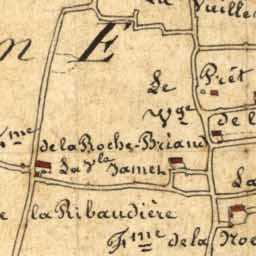 La Vuille
E
Le
Prêt
Vge
de l
de la Roche-Briand
La Vla Jamet
La
e la Ribaudière
Fme de la Roc